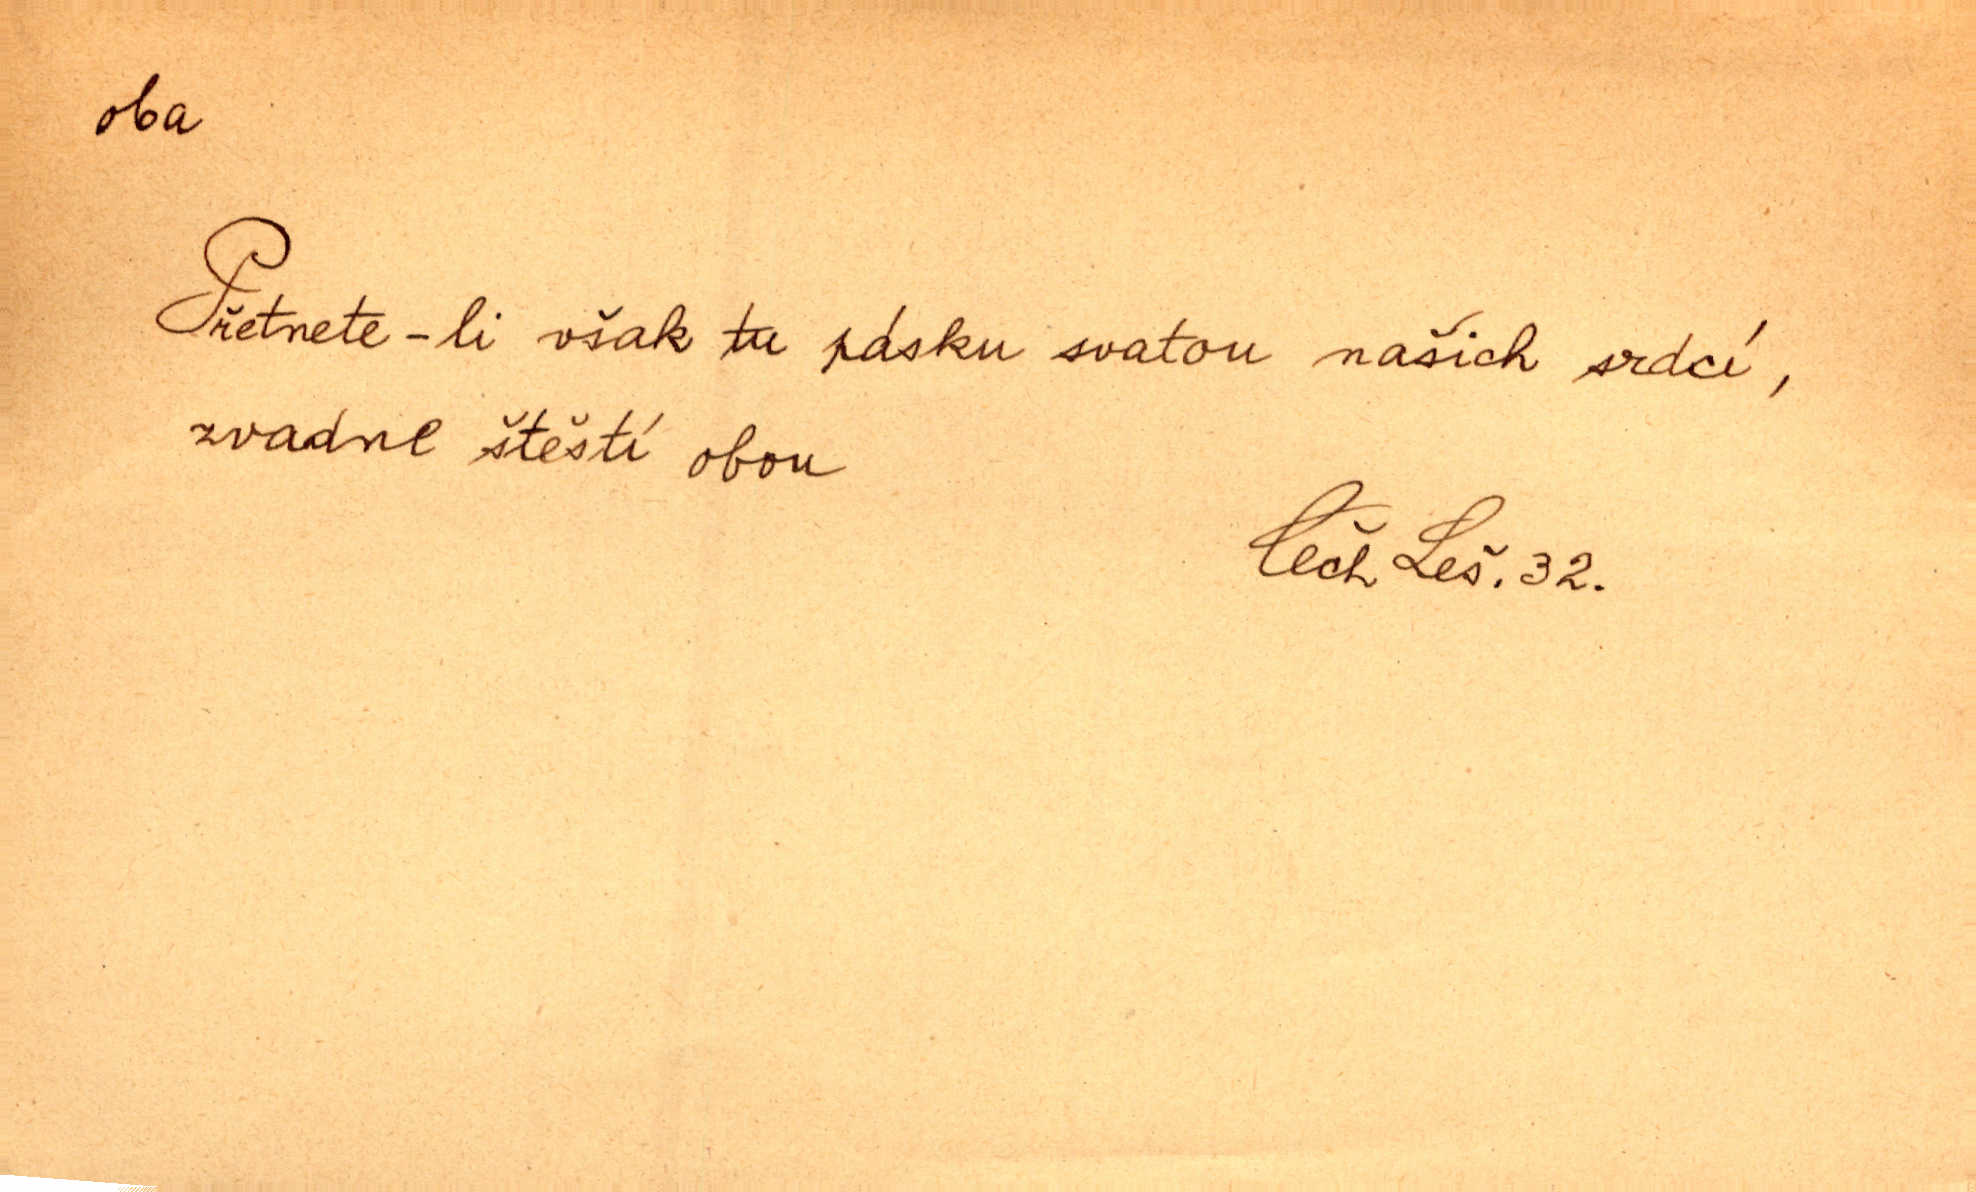 oba
Přetnete-li však tu pásku svatou našich srdcí,
zvadne štěstí obou
Čech Leš. 32.